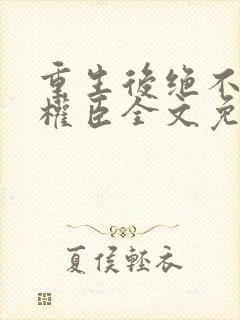 重生後绝不
權臣全文免
夏侯輕衣